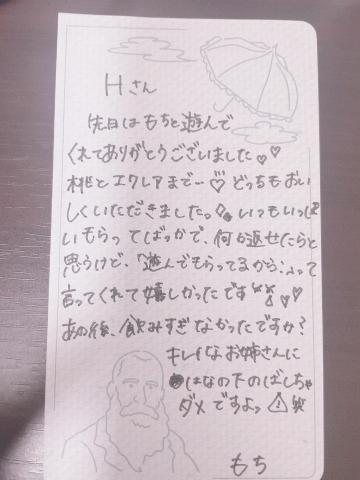 Hさん
先日はもちと遊んで
くれてありがとうございました♡♡
桃とエクレアまで…♡ どっちもおい
しくいただきました。いつもいっぱ
いもらってばっかで、何か返せたらと
思うけど、「遊んでもらってるから」って
言ってくれて嬉しかったです♡♡
あの後、飲みすぎなかったですか?
キレイなお姉さんに
はなの下のばしちゃ
ダメですよっ⚠笑
もち